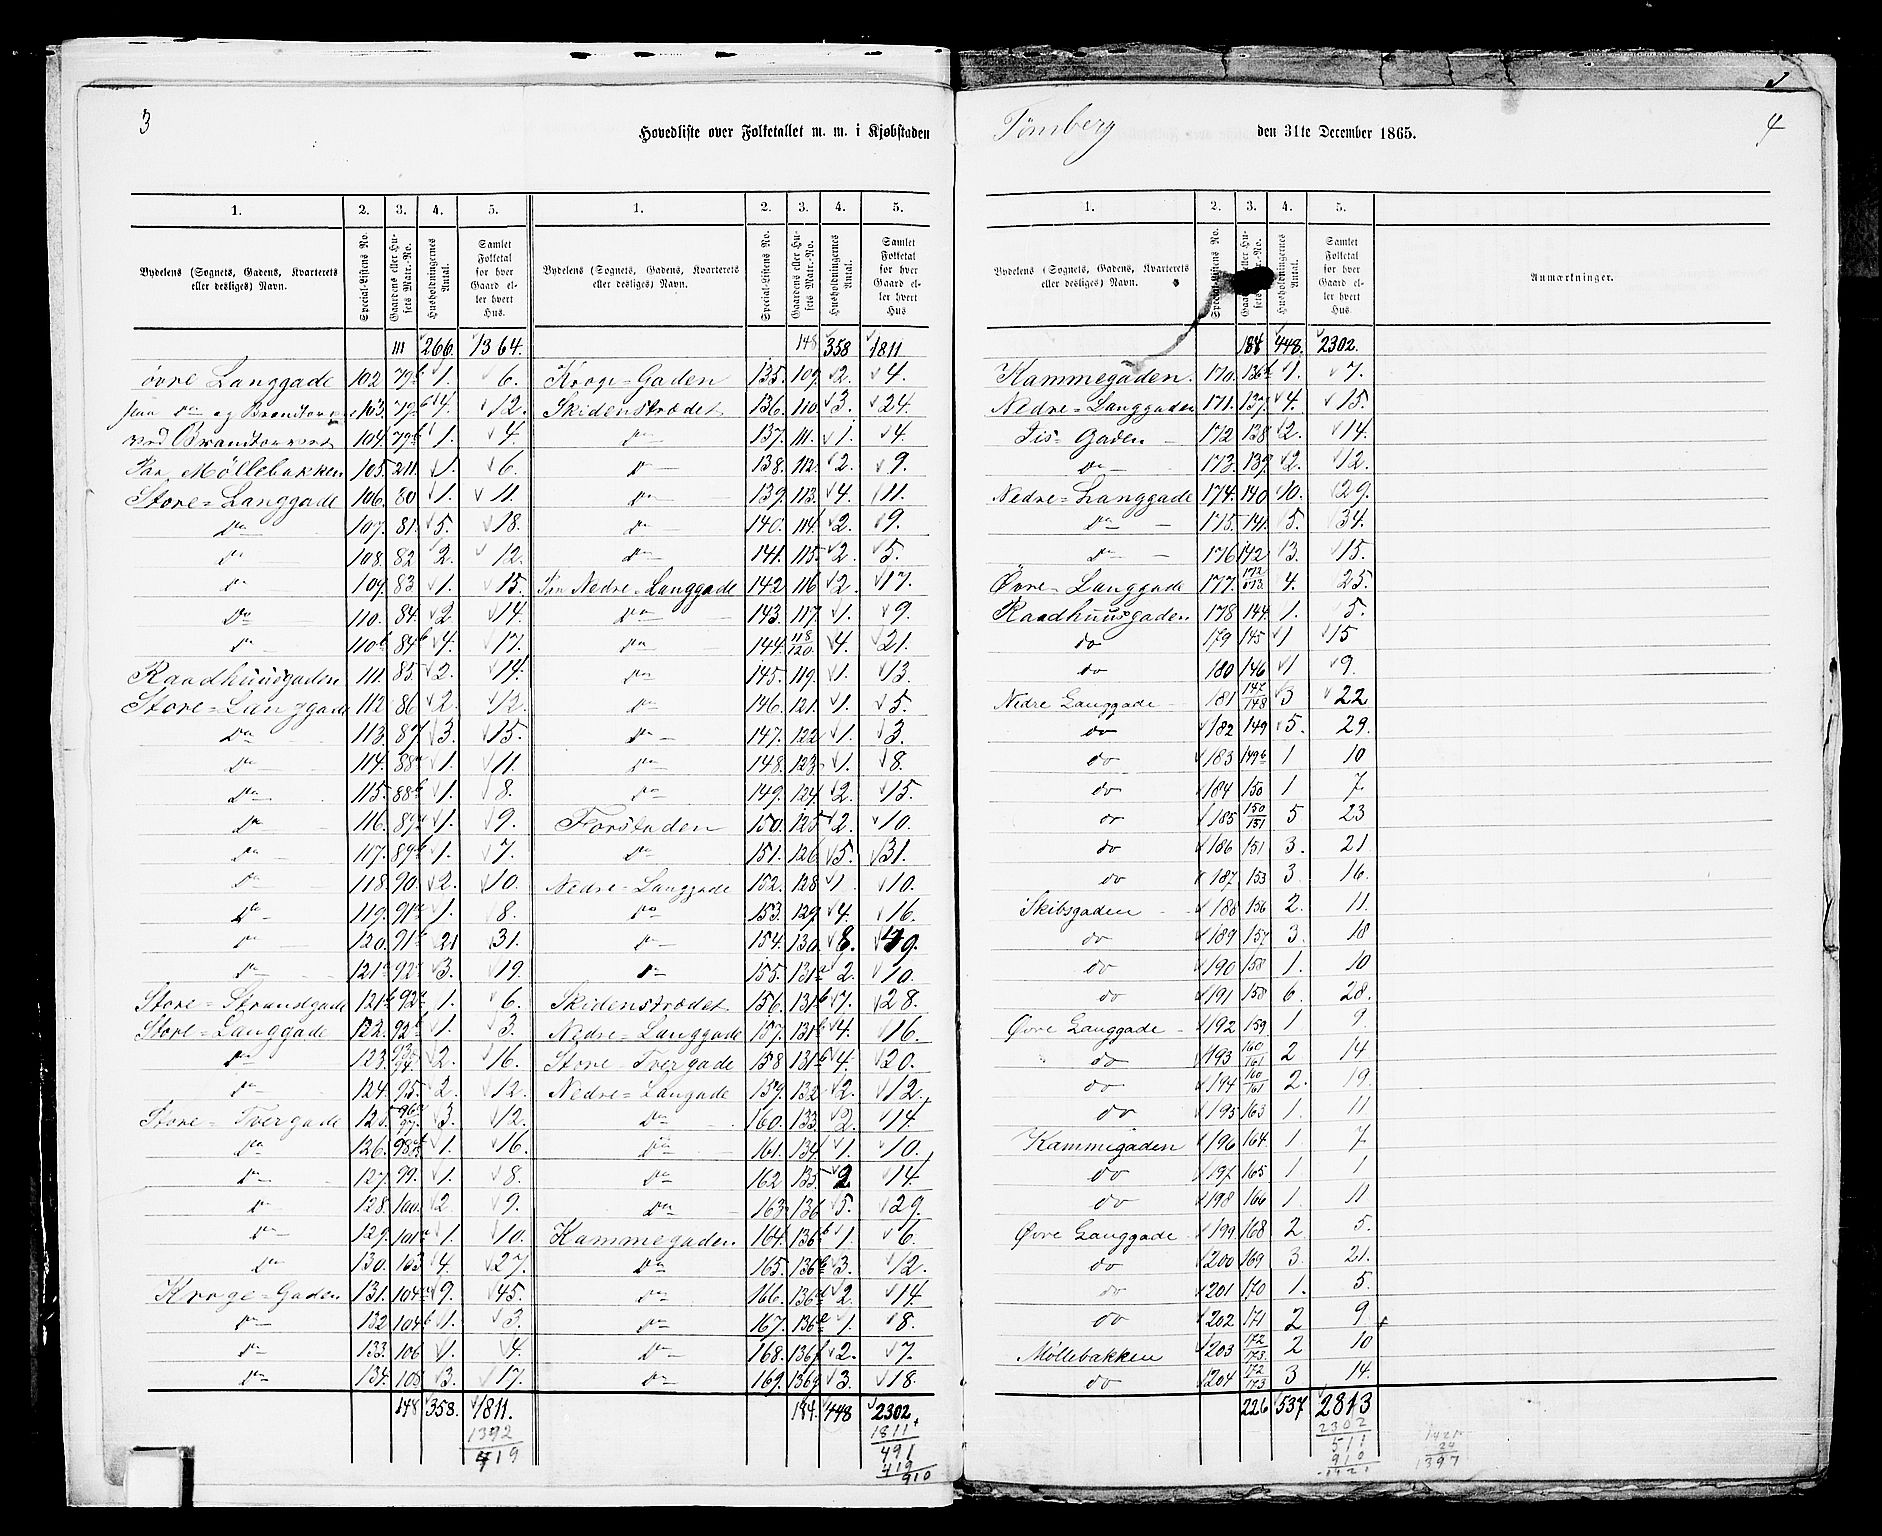 3
Hovedliste over Folketallet m. m. i Kjøbstaden
1. 2. 3. 4. 5. 1. 2. 3. 4. 5.
Bydelens (Sognets, Gadens, Kvarterets eller desliges) Navn. Special-Listens No. Gaardens eller Husets Matr.-No. Husholdningernes Antal. Samlet Folketal for hver Gaard eller hvert Hus. Bydelens (Sognets, Gadens, Kvarterets eller desliges) Navn. Special-Listens No. Gaardens eller Husets Matr.-No. Husholdningernes Antal. Samlet Folketal for hver Gaard eller hvert Hus
111 266. 1364. 148 358 1811
øvre Langgade 102 79 1. 6. Kroge=Gaden 135. 109. 2. 4.
Do og Brandtorv 103. 79 4. 12. Skidenstrædet 136. 110. 3. 24.
ved Brandtorvet 104. 79 1. 4. Do 137. 111. 1. 4.
Møllebakken 105. 211. 1. 6. Do 138. 112. 2. 9.
Store=Langgade 106. 80 1. 11. Do 139. 113. 4. 11.
Do 107. 81. 5. 18. Do 140. 114. 2. 9.
Do 108. 82 2. 12. Do 141. 115. 2. 5.
Do 109. 83 1. 15. Nedre=Langgade 142 116 2. 17.
Do 110. 84. 2 14. Do 143. 117. 1. 9.
Do 110b 84b 4. 17. Do 144. 118/120. 4. 21.
Raadhuusgaden 111. 85. 2. 14. Do 145. 119. 1. 13.
Store=Langgade 112 86 2. 12. Do 146. 121. 1. 5.
Do 113. 87 3. 15. Do 147. 122 1. 3.
Do 114. 88a 1. 11. Do 148. 123. 1. 8.
Do 115. 88b 1. 8. Do 149. 124. 2. 15.
Do 116. 89a 1. 9. Forstaden 150. 125 2. 10.
Do 117. 89b 1. 7. Do 151. 126. 5. 31.
Do 118. 90. 2. 10. Nedre=Langgade 152. 128 1 10.
Do 119. 91a 1. 8. Do 153. 129. 4. 16.
Do 120. 91b 21 31. Do 154. 130. 8.
Do 121a 92a 3. 19. Do 155. 131a 2. 10.
Store=Strandgade 121b 92 1. 6. Skidenstrædet 156. 131b 7. 28.
Store=Langgade 122. 92b 1. 3. Nedre=Langgade 157. 131 4. 16.
Do 123. 2. 16. Store=Tvergade 158 131 4. 20.
Do 124. 95. 2. 12. Nedre=Langade 159. 132 2. 12.
Store=Tvergade 125. 96/97. 3. 12. Do 160. 133. 2. 14.
Do 126. 98 1. 16. Do 161. 134. 1. 10.
Do 127. 99. 1. 8. Do 162 135. 2 14.
Do 128. 100. 2. 9. Do 163. 136 5. 29.
Do 129. 101 1. 10. Kammegaden. 164. 136b 1. 6.
Do 130. 103 4. 27. Do 165. 136c 3. 12.
Kroge=Gaden 131. 104a 9. 45. Do 166. 136d 2. 14.
Do 132 104b 1. 3. Do 167. 136e 1. 8.
Do 133. 106 1. 4. Do 168. 136f 2. 7.
Do 134. 108 3. 17. Do 169. 136g 3. 18.
148 358. 1811. 184. 448 2302
1392
419
1811
491
419
910
Tønsberg den 31te December 1865.
4
1. 2. 3. 4. 5.
Bydelens (Sognets, Gadens, Kvarterets eller desliges) Navn. Special-Listens No. Husholdningernes Antal. Samlet Folketal for hver Gaard eller hvert Hus. Anmærkninger.
184 448. 2302.
Kammegaden. 170. 136h 1. 7.
Nedre=Langgaden 171. 137. 4. 15.
Fis=Gaden 172 138 2. 14.
Do 173. 139. 2. 12.
Nedre=Langgade 174. 140 10. 29.
Do 175. 141. 5. 34.
Do 176 142 3. 15.
Øvre=Langgade 177. 172/173. 4. 25.
Raadhuusgaden 178 144. 1. 5.
do 179 145 1 15
do 180 146 1 9.
Nedre Langgade 181 147/148 3 22
do 182 149 5. 29.
do 183 149b 1 10
do 184 150 1 7.
do 185 150/151 5 23
do 186 151 3. 21
do 187 153 3. 16.
Skibsgaden 188 156 2. 11.
do 189 157 3. 18
do 190 158 1. 10
do 191 158 6. 28.
Øvre Langgade 192 159 1 9.
do 193 160/161 2 14
do 194 160/161 2. 19.
do 195 163 1. 11
Kammegaden 196 164 1. 7
do 197 165 1 1
do 198 166 1. 11
Øvre Langgade 199 168 2. 5.
do 200 169 3. 21.
do 201 170 1. 5.
do 202 171 2 9.
Møllebakken 203 172/173. 2 10
do 204 172/173 3 14.
226 537 2813
2302
511
910
1421
1421
24
1397